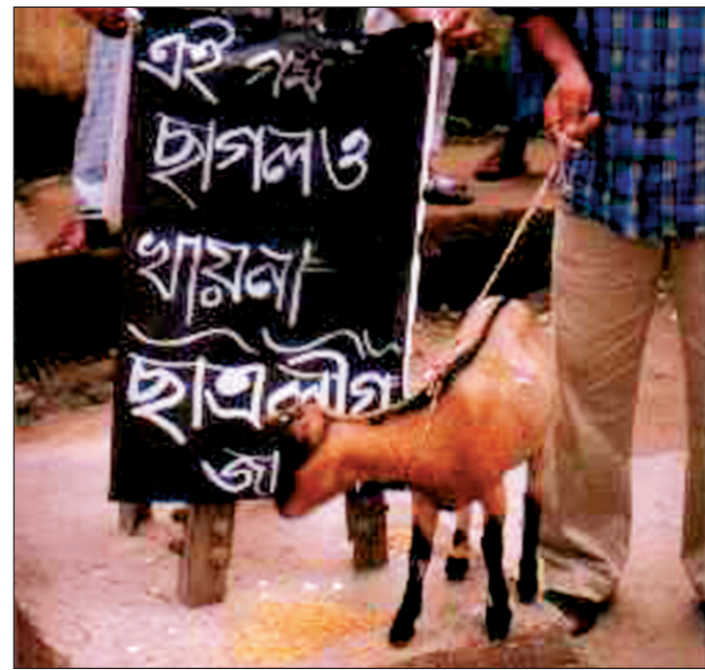 এই গম
ছাগলও
খায়না
ছাত্রলীগ
জা